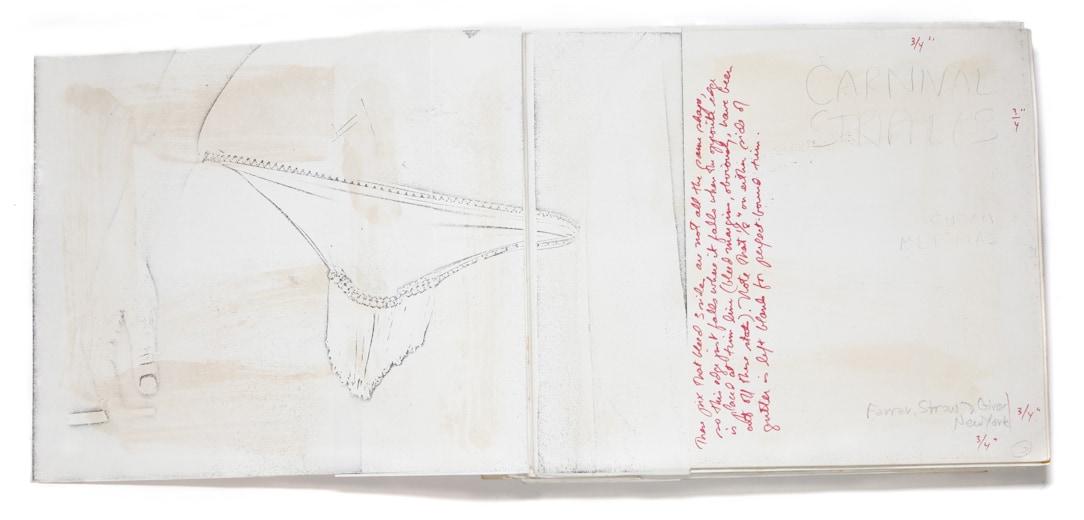 3/4"
CARNIVAL
STRIPPERS
1"
SUSAN
MEISELAS
These pix that bleed 3 sides are not all the same shape,
so this edge just falls where it falls when the opposite edge
is placed at trim line (bleed margin, obviously, have been
cut off these stats). Note that 1/8" on either side of
gutter is left blank for perfect-bound trim.
Farrar, Straus & Giroux
New York
3/4"
3/4"